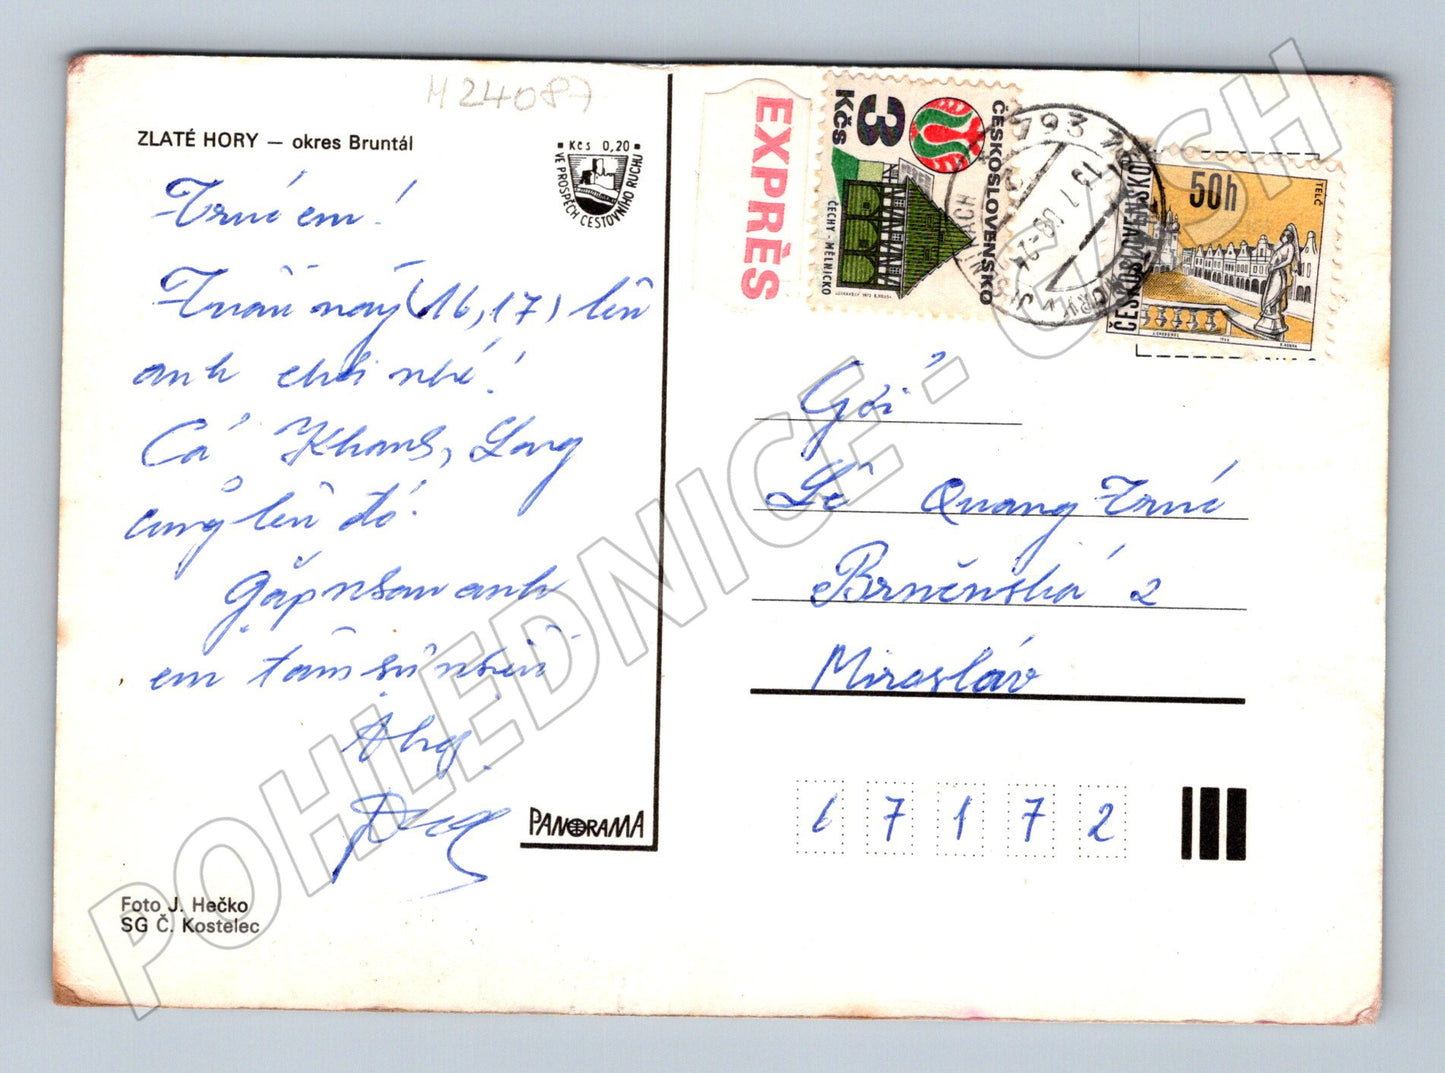 M 24087
ZLATÉ HORY — okres Bruntál
Kčs 0,20
VE PROSPĚCH CESTOVNÍHO RUCHU
Trúc em!
Tuần này (16, 17) lên
anh chơi nhé!
Cả Khanh, Long
cũng lên đó.
Gặp nhau anh
em tâm sự nhiều
PANORAMA
Foto J. Hečko
SG Č. Kostelec
EXPRÈS
3 Kčs
ČESKOSLOVENSKO
ČECHY - MĚLNICKO
793 76
13.7.89-24
50h
TELČ
ČESKOSLOVENSKO
Gởi
Lê Quang Trúc
Brněnská 2
Miroslav
67172
POHLEDNICE - CASH